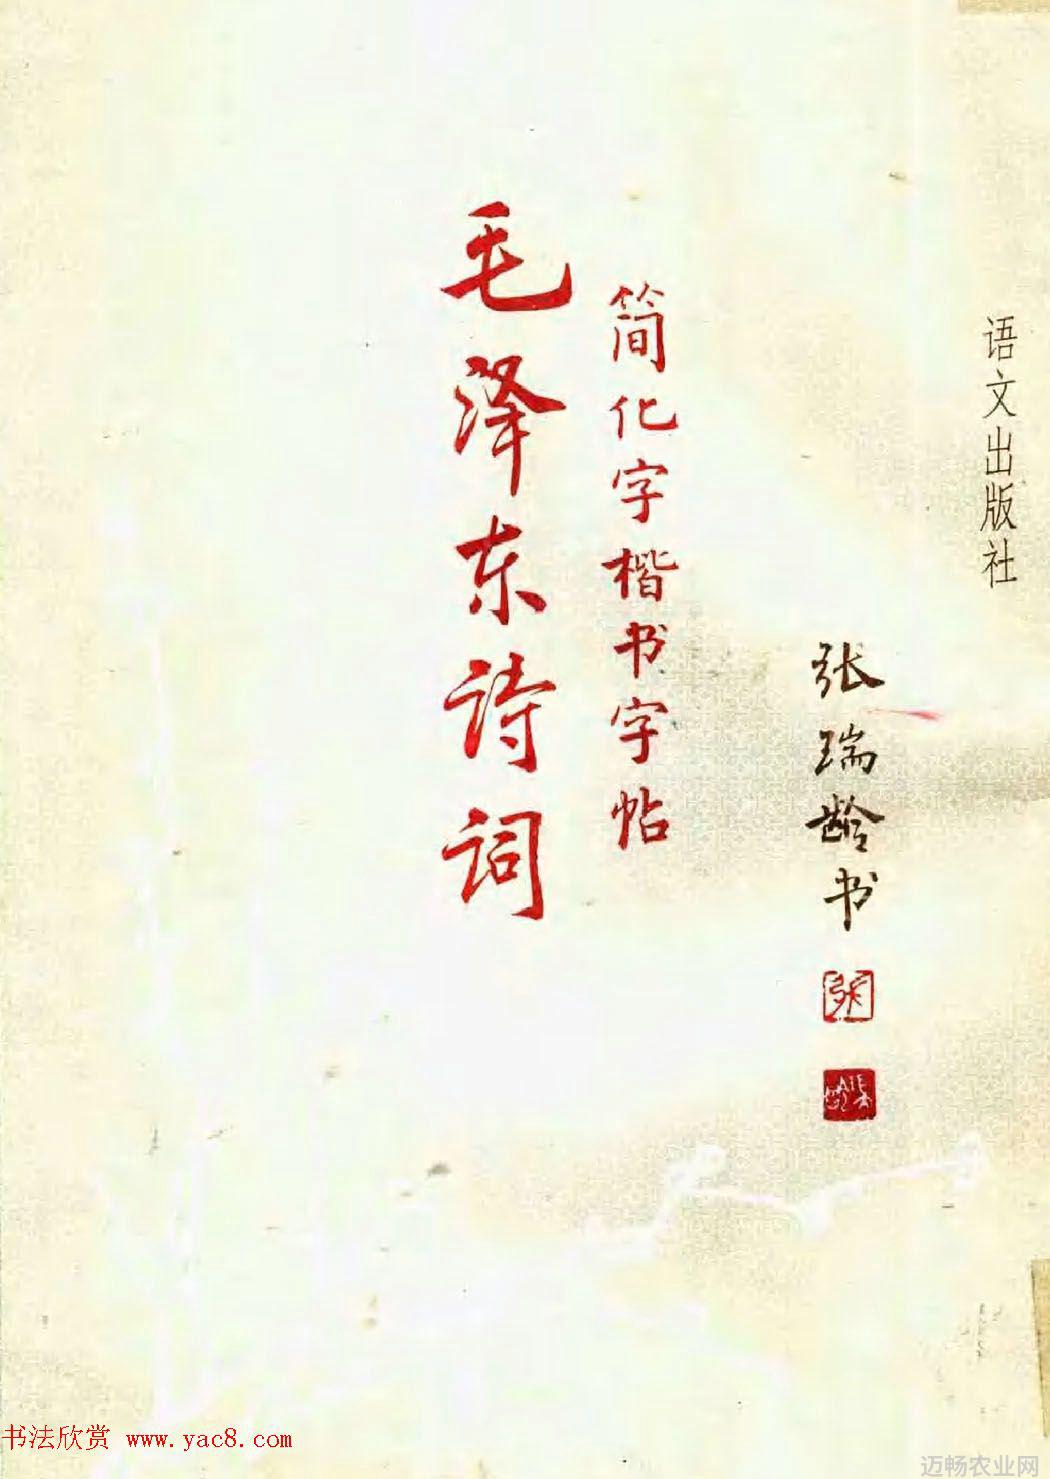 毛泽东诗词
简化字楷书字帖
张瑞龄书
语文出版社
书法欣赏 www.yac8.com
迈畅农业网